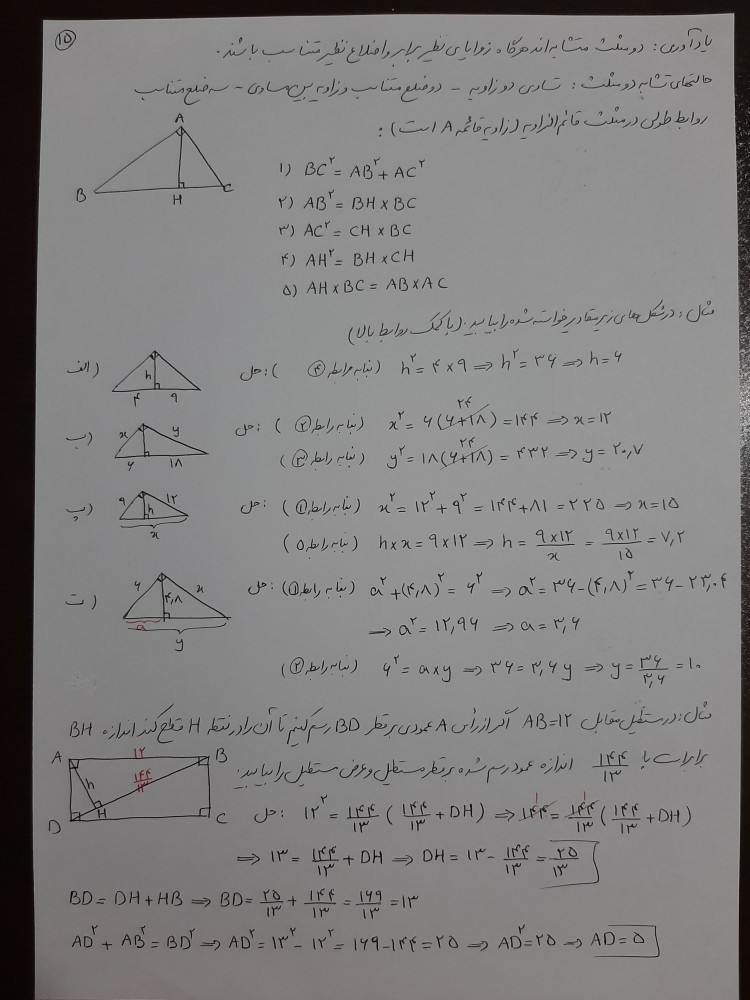 ۱۵
یادآوری: دو مثلث متشابه‌اند هرگاه زوایای نظیر برابر و اضلاع نظیر متناسب باشند.
حالتهای تشابه دو مثلث: تساوی دو زاویه - دو ضلع متناسب و زاویه بین مساوی - سه ضلع متناسب
روابط طولی در مثلث قائم‌الزاویه (زاویه قائمه A است):
A
B H C
۱) BC² = AB² + AC²
۲) AB² = BH × BC
۳) AC² = CH × BC
۴) AH² = BH × CH
۵) AH × BC = AB × AC
مثال: در شکل‌های زیر مقادیر خواسته شده را بیابید. (با کمک روابط بالا)
الف) h ۴ ۹ حل: (بنا به رابطه ۴) h² = ۴ × ۹ ⇒ h² = ۳۶ ⇒ h = ۶
ب) x y ۶ ۱۸ حل: (بنا به رابطه ۲) x² = ۶(۶+۱۸) = ۱۴۴ ⇒ x = ۱۲ ۲۴
(بنا به رابطه ۳) y² = ۱۸(۶+۱۸) = ۴۳۲ ⇒ y = ۲۰,۷ ۲۴
پ) ۹ ۱۲ h x حل: (بنا به رابطه ۱) x² = ۱۲² + ۹² = ۱۴۴ + ۸۱ = ۲۲۵ ⇒ x = ۱۵
(بنا به رابطه ۵) h × x = ۹ × ۱۲ ⇒ h = ۹×۱۲/x = ۹×۱۲/۱۵ = ۷,۲
ت) ۶ x ۴,۸ a y حل: (بنا به رابطه ۱) a² + (۴,۸)² = ۶² ⇒ a² = ۳۶ - (۴,۸)² = ۳۶ - ۲۳,۰۴
⇒ a² = ۱۲,۹۶ ⇒ a = ۳,۶
(بنا به رابطه ۲) ۶² = a × y ⇒ ۳۶ = ۳,۶ y ⇒ y = ۳۶/۳,۶ = ۱۰
مثال: در مستطیل مقابل AB = ۱۲ اگر از رأس A عمودی بر قطر BD رسم کنیم تا آن را در نقطه H قطع کند اندازه BH
برابر است با ۱۴۴/۱۳ اندازه عمود رسم شده بر قطر مستطیل و عرض مستطیل را بیابید.
A ۱۲ B
h ۱۴۴/۱۳
D H C
حل: ۱۲² = ۱۴۴/۱۳ (۱۴۴/۱۳ + DH) ⇒ ۱۴۴ = ۱۴۴/۱۳ (۱۴۴/۱۳ + DH) ۱ ۱
⇒ ۱۳ = ۱۴۴/۱۳ + DH ⇒ DH = ۱۳ - ۱۴۴/۱۳ = ۲۵/۱۳
BD = DH + HB ⇒ BD = ۲۵/۱۳ + ۱۴۴/۱۳ = ۱۶۹/۱۳ = ۱۳
AD² + AB² = BD² ⇒ AD² = ۱۳² - ۱۲² = ۱۶۹ - ۱۴۴ = ۲۵ ⇒ AD² = ۲۵ ⇒ AD = ۵